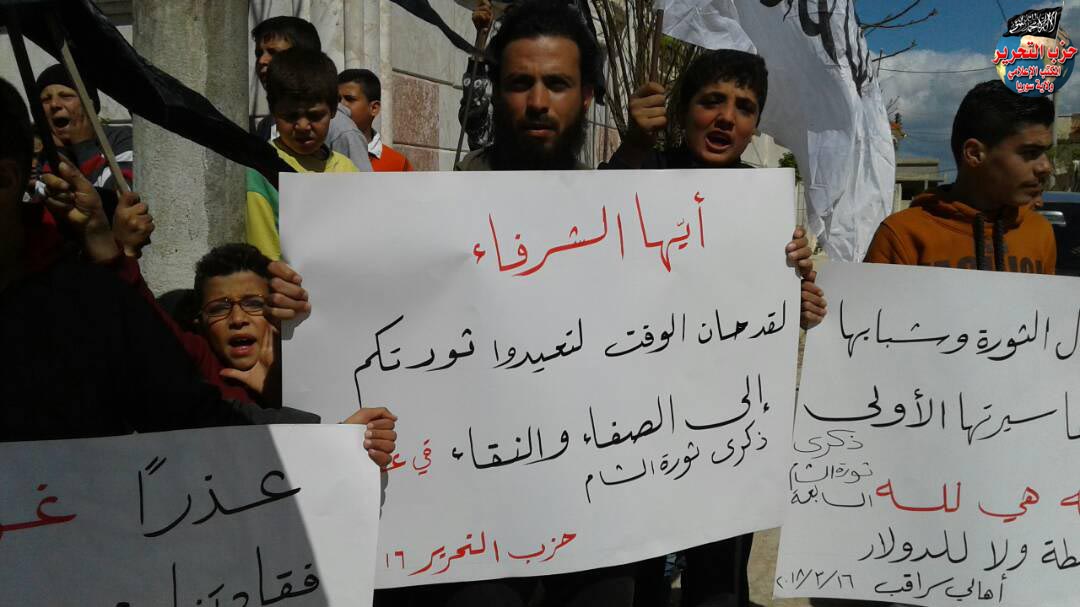 حزب التحرير
المكتب الإعلامي
ولاية سوريا
أيّها الشرفاء
لقد حان الوقت لتعيدوا ثورتكم
إلى الصفاء والنقاء في
ذكرى ثورة الشام
حزب التحرير ١٦
ل الثورة وشبابها
سيرتها الأولى
ذكرى
ثورة الشام
السابعة
هي لله
ولا للدولار
أهالي سراقب ٢٠١٨/٣/١٦
عذراً